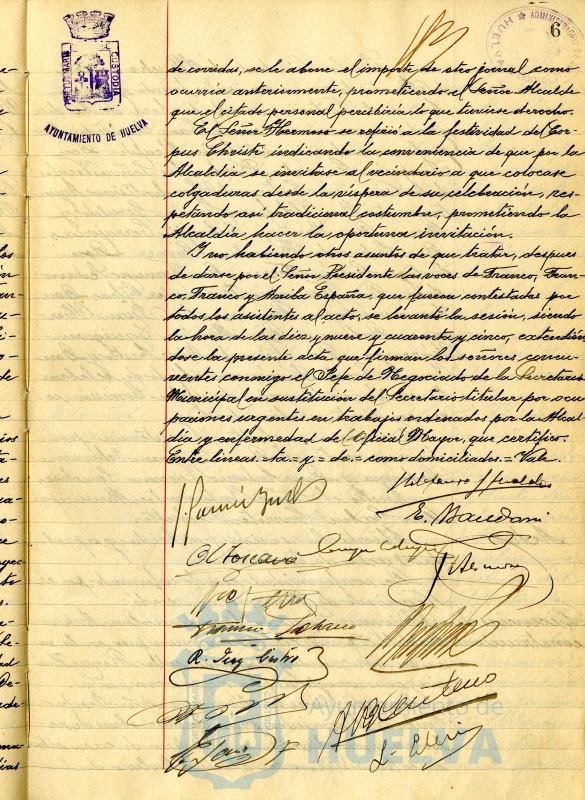 6
ADMINISTRACION
HUELVA
PORTUS MARIS
CUSTODIA
AYUNTAMIENTO DE HUELVA
de corridas, se le abone el importe de otro jornal como
ocurria anteriormente, prometiendo el Señor Alcalde
que el citado personal percibiria lo que tuviese derecho.
El Señor Hermoso se refirió a la festividad del Cor-
pus Christi indicando la conveniencia de que por la
Alcaldia se invitase al vecindario a que colocase
colgaduras desde la víspera de su celebración, res-
petando asi tradicional costumbre, prometiendo la
Alcaldía hacer la oportuna invitación.
Y no habiendo otros asuntos de que tratar, despues
de darse por el Señor Presidente las voces de Franco, Fran-
co, Franco y Arriba España, que fueron contestadas por
todos los asistentes al acto, se levantó la sesión, siendo
la hora de las diez y nueve y cuarenta y cinco, extendién-
dose la presente acta que firman los señores concu-
rrentes conmigo el Jefe de Negociado de la Secretaria
Municipal en sustitución del Secretario titular por ocu-
paciones urgentes en trabajos ordenados por la Alcal-
dia y enfermedad del Oficial Mayor, que certifico.
Entre lineas = ta = y = de = como domiciliados = Vale.
E.
R.
Ayuntamiento de
HUELVA